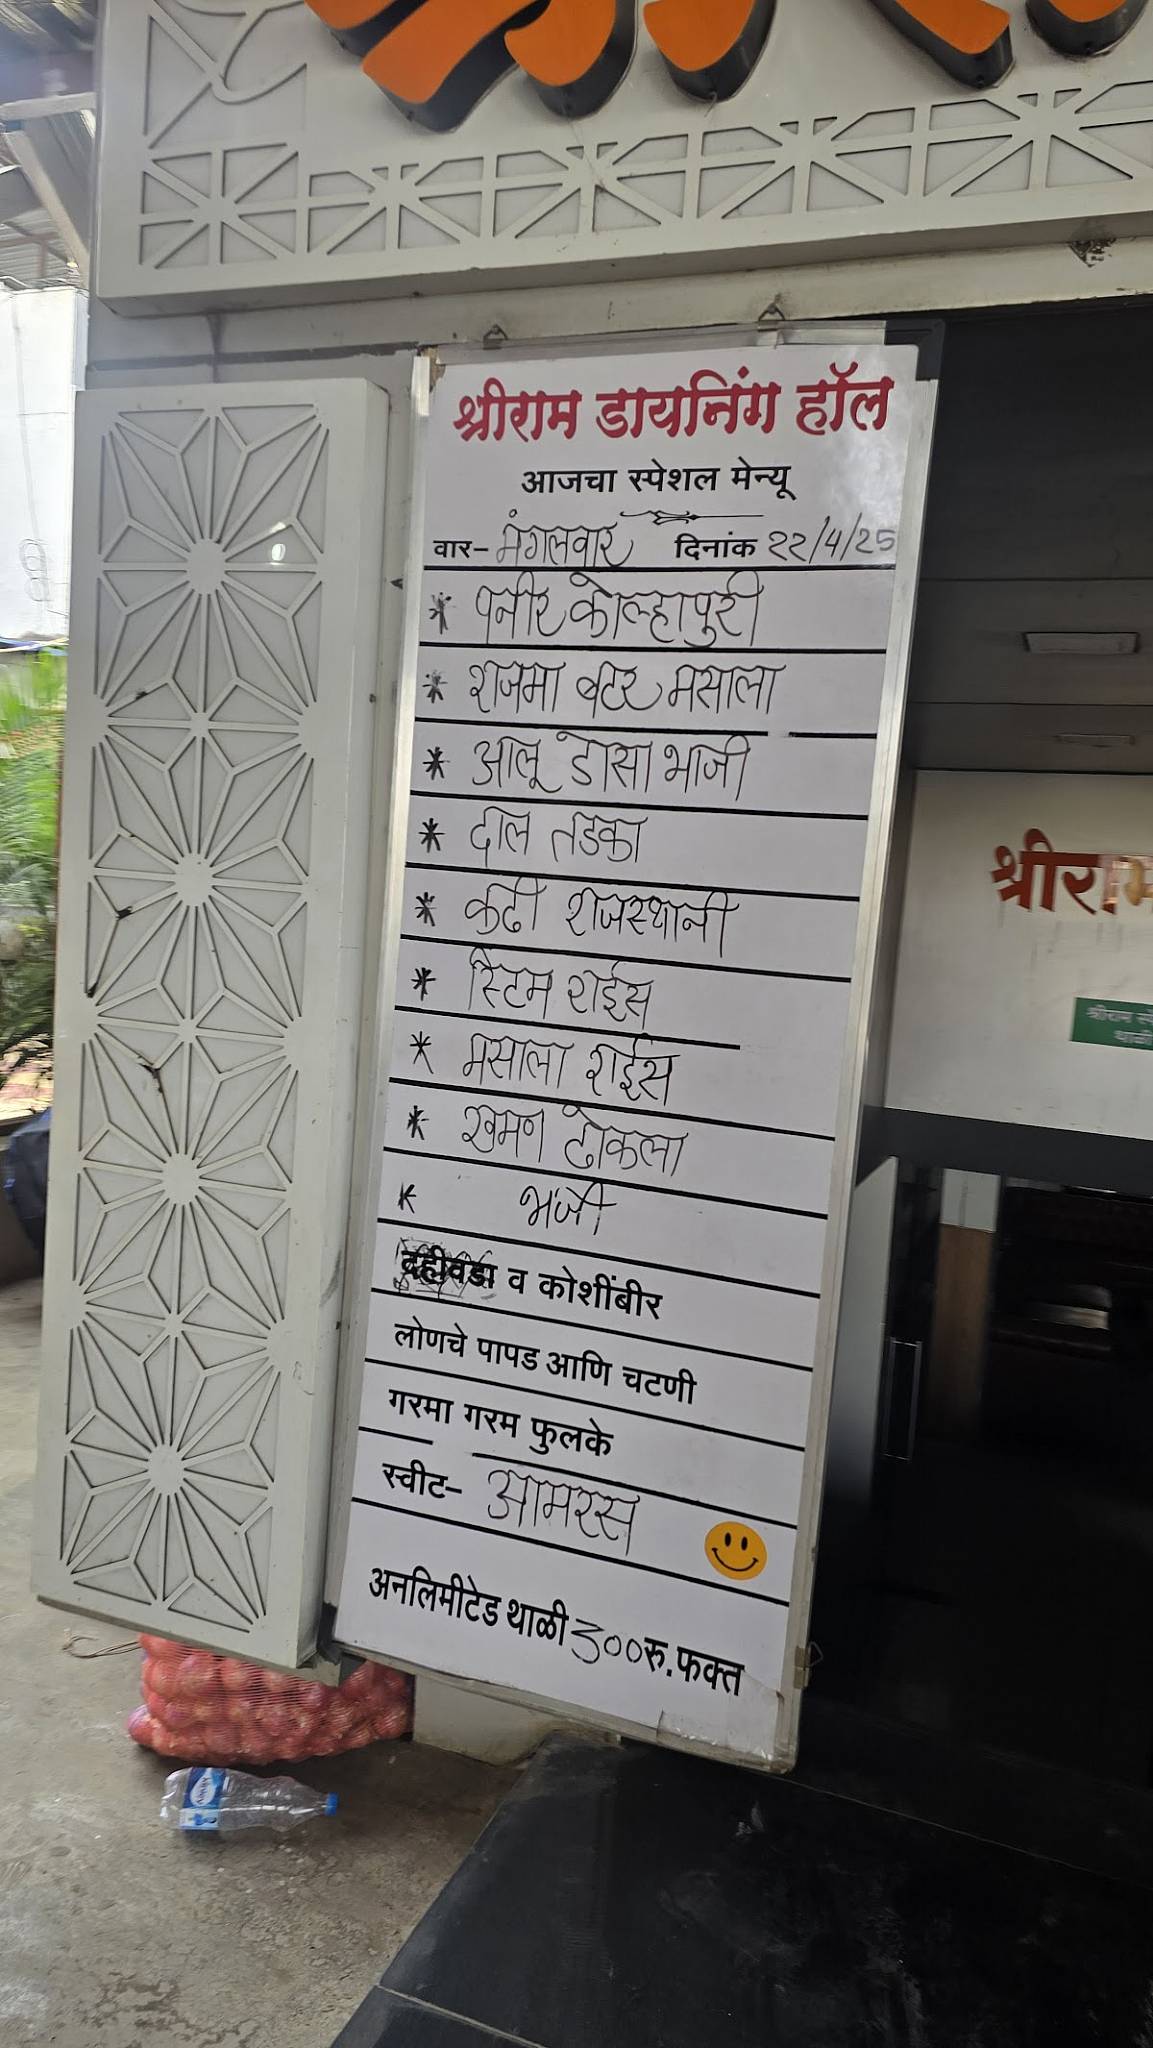 श्रीराम डायनिंग हॉल
आजचा स्पेशल मेन्यू
वार- मंगलवार दिनांक २२/4/25
* पनीर कोल्हापुरी
* राजमा बटर मसाला
* आलू डोसा भाजी
* दाल तडका
* कढी राजस्थानी
* स्टिम राईस
* मसाला राईस
* खमण ढोकला
* भजी
दहीवडा व कोशींबीर
लोणचे पापड आणि चटणी
गरमा गरम फुलके
स्वीट- आमरस
अनलिमीटेड थाळी ३००रु.फक्त
श्रीराम